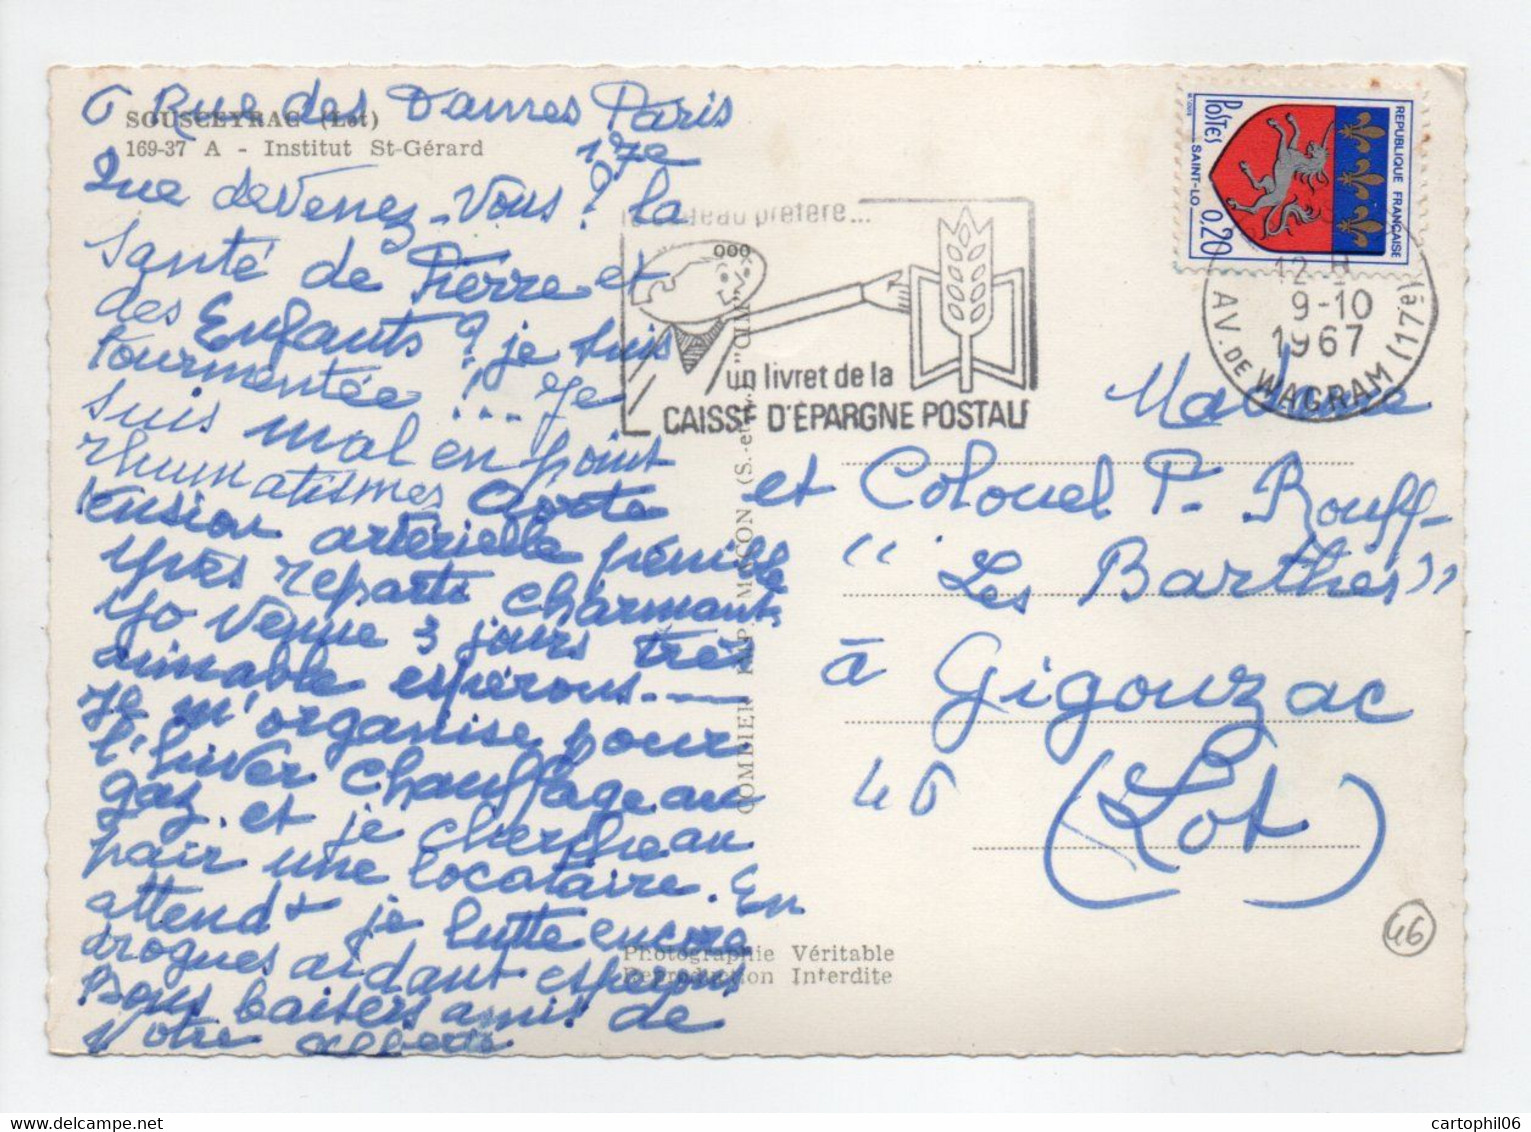 6 Rue des Dames Paris
17e
SOUSCEYRAC (Lot)
169-37 A - Institut St-Gérard
Que devenez-vous ? la
santé de Pierre et
des Enfants ? je suis
tourmentée ! ... Je
suis mal en point
rhumatismes
tension artérielle pénible
Yves reparti charmant
venue 3 jours très
aimable espérons
je m'organise pour
l'hiver chauffage au
gaz et je cherche au
pair une locataire. En
attendt je lutte encore
drogues aidant espérons
Bons baisers amis de
Votre
cadeau préféré...
un livret de la
CAISSE D'ÉPARGNE POSTALE
REPUBLIQUE FRANÇAISE
POSTES
SAINT-LO
0,20
12 H
9-10
1967
AV. DE WAGRAM (17è)
COMBIER IMP. MACON (S.-et-L.) "CIM"
Madame
et Colonel P. Rouff
"Les Barthes"
à Gigouzac
46 (Lot)
46
Photographie Véritable
Reproduction Interdite
cartophil06